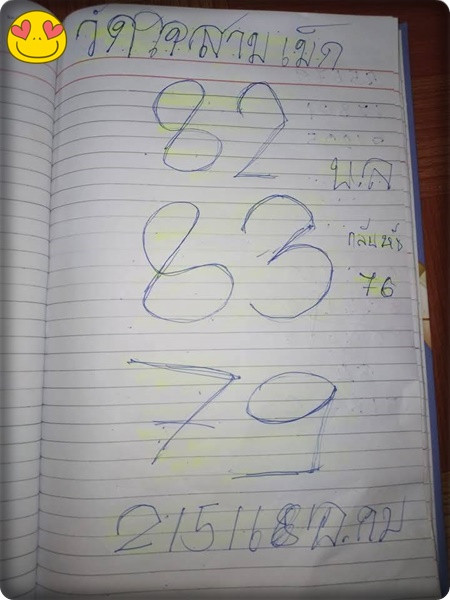 วัดใจสามเม็ด
82
น.ล
83
กลับหัว
76
79
2/5/68